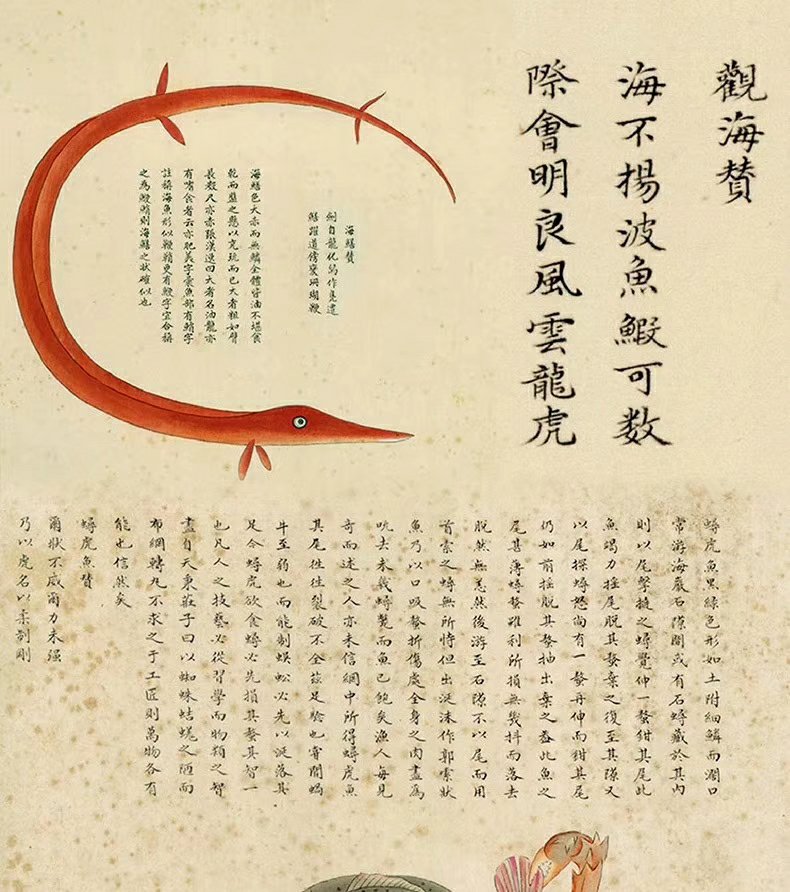 觀海賛
海不揚波魚鰕可数
際會明良風雲龍虎
海鱔賛
劍自龍化舄作鳧遣
鱔躍道傍變珊瑚鞭
海鱔色大赤而無鱗全體皆油不堪食
乾而盬之懸以充玩而已大者粗如臂
長數尺亦赤張漢逸曰大者名油龍亦
有嗜食者云亦肥美字彙魚部有鮹字
註稱海魚形似鞭鞘更有鯾字宜合稱
之為鯾鮹則海鱔之狀確似也
蟳虎魚黒綠色形如土附細鱗而濶口
常游海巖石隙間或有石蟳藏於其内
則以尾擊撻之蟳覺伸一螯鉗其尾此
魚竭力摇尾脱其螯棄之復至其隙又
以尾探蟳怒尚有一螯再伸而鉗其尾
仍如前摇脱其螯抽出棄之盖此魚之
尾甚薄蟳螯雖利所損無幾抖而落去
脱然無恙然後游至石隙不以尾而用
首索之蟳無所恃但出涎沫作郭索狀
魚乃以口吸螯折傷處全身之肉盡為
吮去未幾蟳斃而魚已飽矣漁人每見
奇而述之人亦未信網中所得蟳虎魚
其尾徃徃裂破不全茲足驗也嘗聞蝎
牛至弱也而能制蜈蚣必先以涎落其
足今蟳虎欲食蟳必先損其螯其智一
也凡人之技藝必從習學而物類之智
盡自天秉莊子曰以蜘蛛蛣蜣之陋而
布網轉丸不求之于工匠則萬物各有
能也信然矣
蟳虎魚賛
爾狀不威爾力未强
乃以虎名以柔制剛